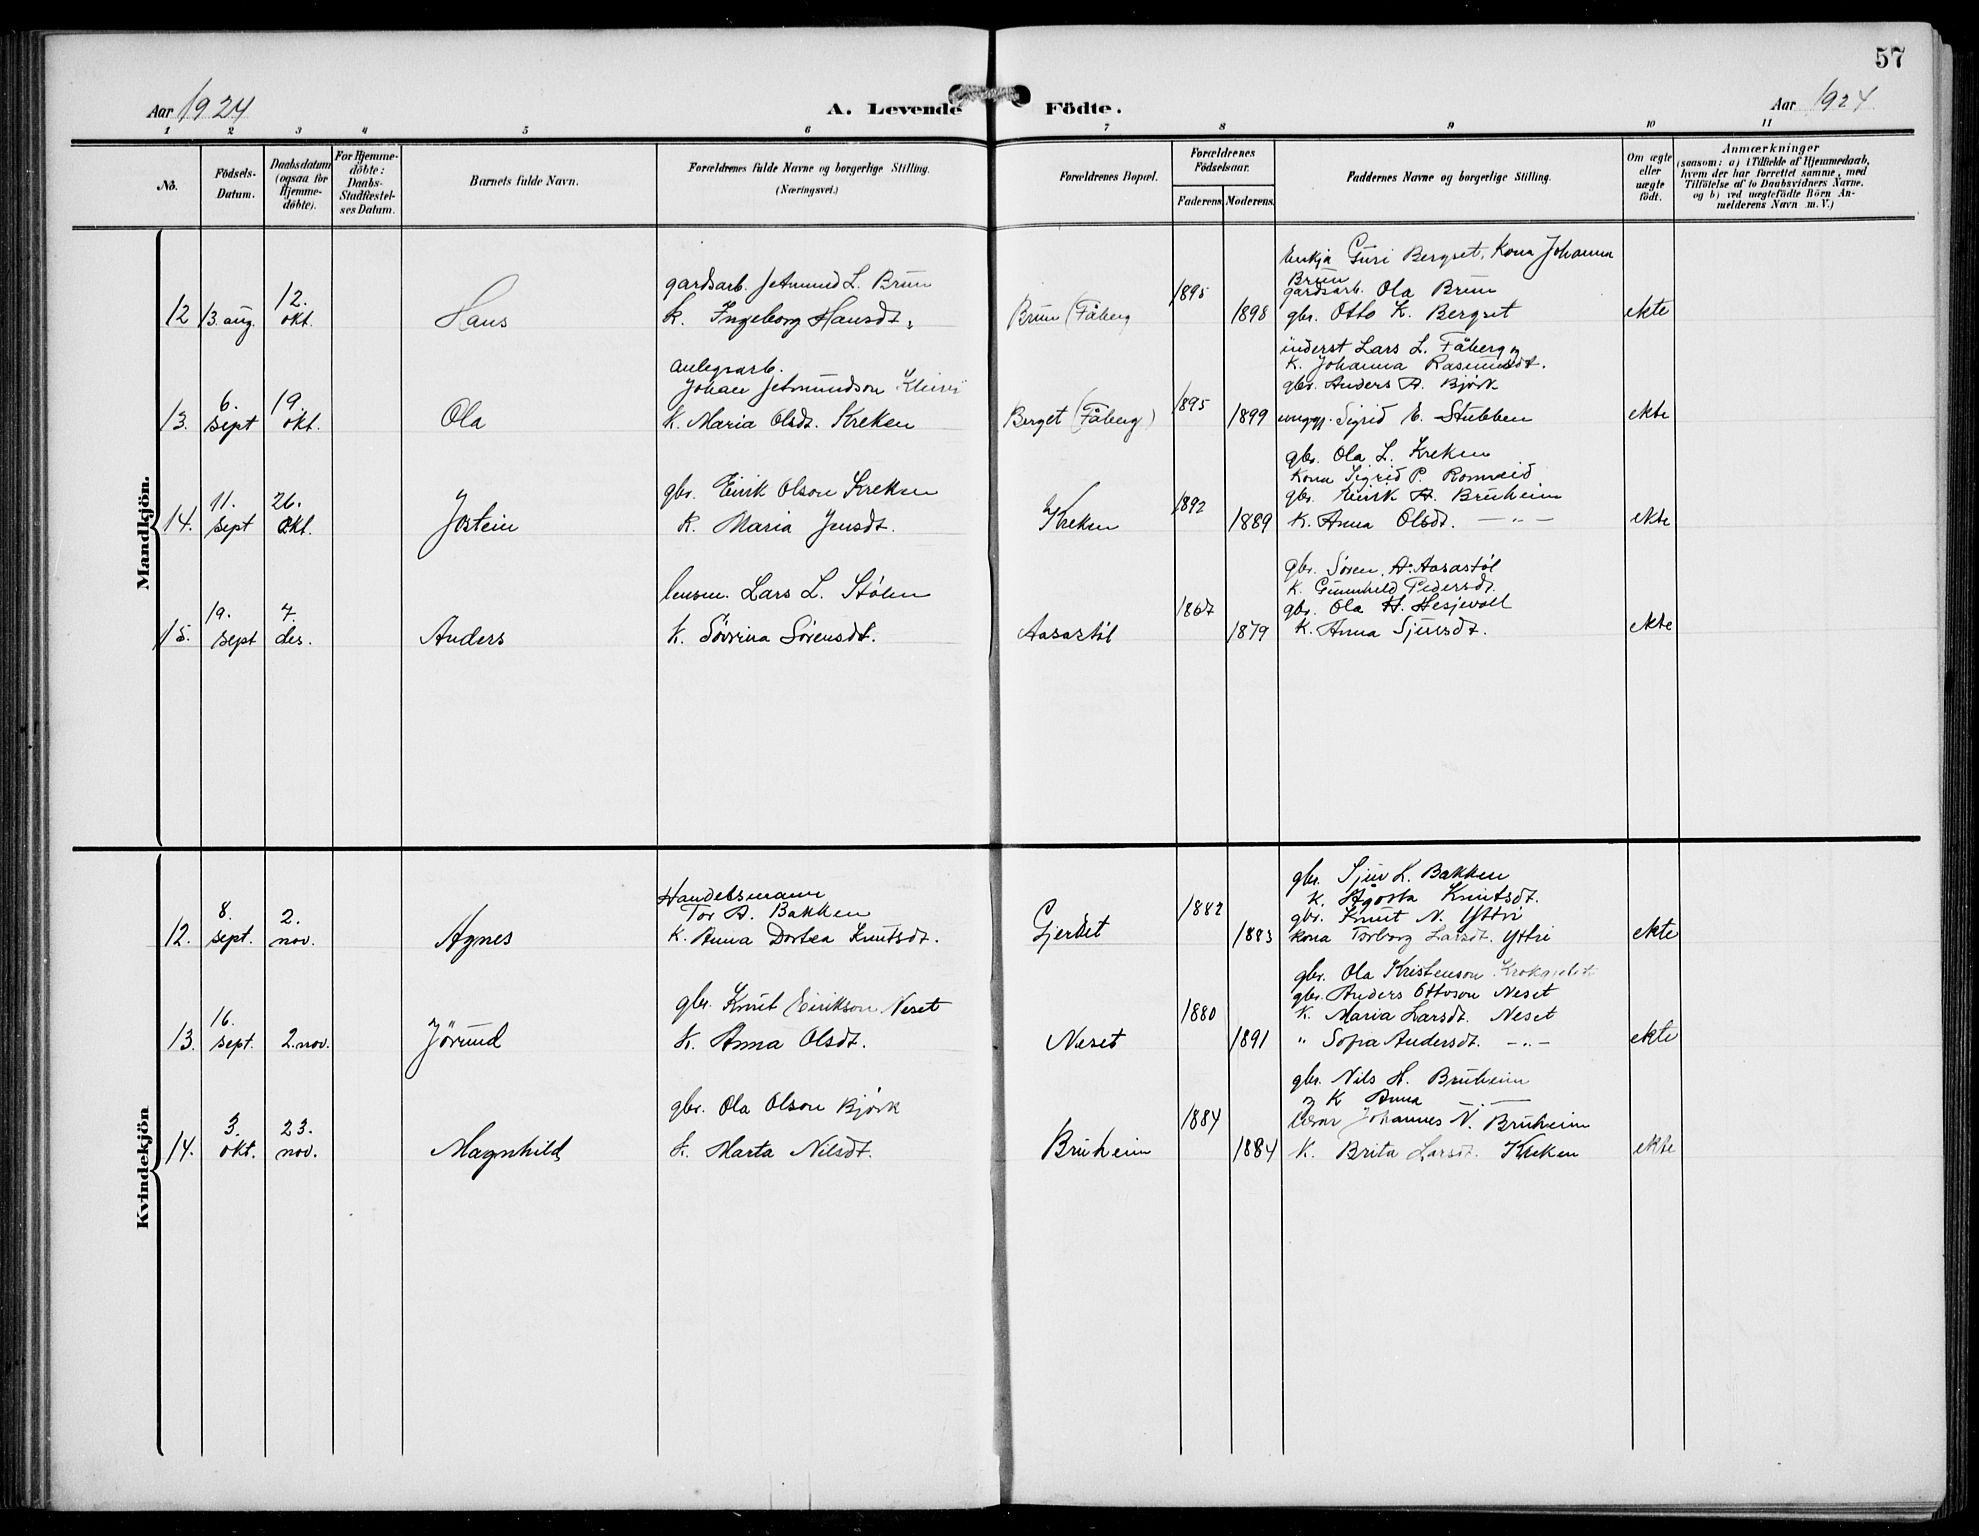 57
Aar 1924
A. Levende Födte.
Aar 1924
1 2 3 4 5 6 7 8 9 10 11
No.
Födsels-
Datum.
Daabsdatum
(ogsaa for
Hjemme-
döbte).
For Hjemme-
döbte:
Daabs-
Stadfæstel-
ses Datum.
Barnets fulde Navn.
Forældrenes fulde Navne og borgerlige Stilling.
(Næringsvei.)
Forældrenes Bopæl.
Forældrenes
Födselsaar.
Faderens
Moderens.
Faddernes Navne og borgerlige Stilling.
Om ægte
eller
uægte
födt.
Anmærkninger
(saasom: a) i Tilfælde af Hjemmedaab,
hvem der har forrettet samme, med
Tilföielse af to Daabsvidners Navne,
og b) ved uægtefödte Börn An-
melderens Navn m. V.)
Mandkjön.
12 13. aug. 12. okt.
Hans
gardsarb. Jetmund L. Brun
k. Ingeborg Hansdt.
Brun (Fåberg
1895
1898
Enkja Guri Bergset, Kona Johanna
Brun
gardsarb. Ola Brun
gbr. Otto K. Bergset
ekte
13. 6. sept 19. okt.
Ola
anlegsarb.
Johan Jetmundson
K. Maria Olsdt. Kreken
Berget (Fåberg)
1895
1899
inderst Lars L. Fåberg og
K. Johanna Rasmusdt.
gbr. Anders A. Bjørk
ungpj. Sigrid E. Stubben
ekte
14. 11. sept 26. okt.
Jostein
gbr. Eirik Olson Kreken
K. Maria Jensdt.
Kreken
1892
1889
gbr. Ola L. Kreken
Kona Sigrid P. Romøid
gbr. Eirik A. Bruheim
K. Anna Olsdt. — „ —
ekte
15. 19. sept 7. des.
Anders
Lars L. Stølen
K. Søvrina Sørensdt.
Aasastøl
1867
1879
gbr. Søren A. Aasastøl
K. Gunnhild Pedersdt.
gbr. Ola H. Hesjevoll
K. Anna Sjursdt.
ekte
Kvindekjön
12. 8. sept. 2. nov.
Agnes
Handelsmann
Tor A. Bakken
K. Anna Dortea Knutsdt.
Gjerdet
1882
1883
gbr. Sjur L. Bakken
K. Ågåsta Knutsdt.
gbr. Knut N. Yttri
kona Torborg Larsdt. Yttri
ekte
13. 16. sept. 2. nov.
Jørund
gbr. Knut Eirikson Neset
K. Anna Olsdt.
Neset
1880
1891
gbr. Ola Kristenson
gbr. Anders Ottoson Neset
K. Maria Larsdt. Neset
„ Sofia Andersdt. — „ —
ekte
14. 3. okt. 23. nov.
Magnhild
gbr. Ola Olson Bjørk
K. Marta Nilsdt.
Bruheim
1884
1884
gbr. Nils H. Bruheim
og K Anna — „ —
Johannes N. Bruheim
K. Brita Larsdt. Kreken
ekte